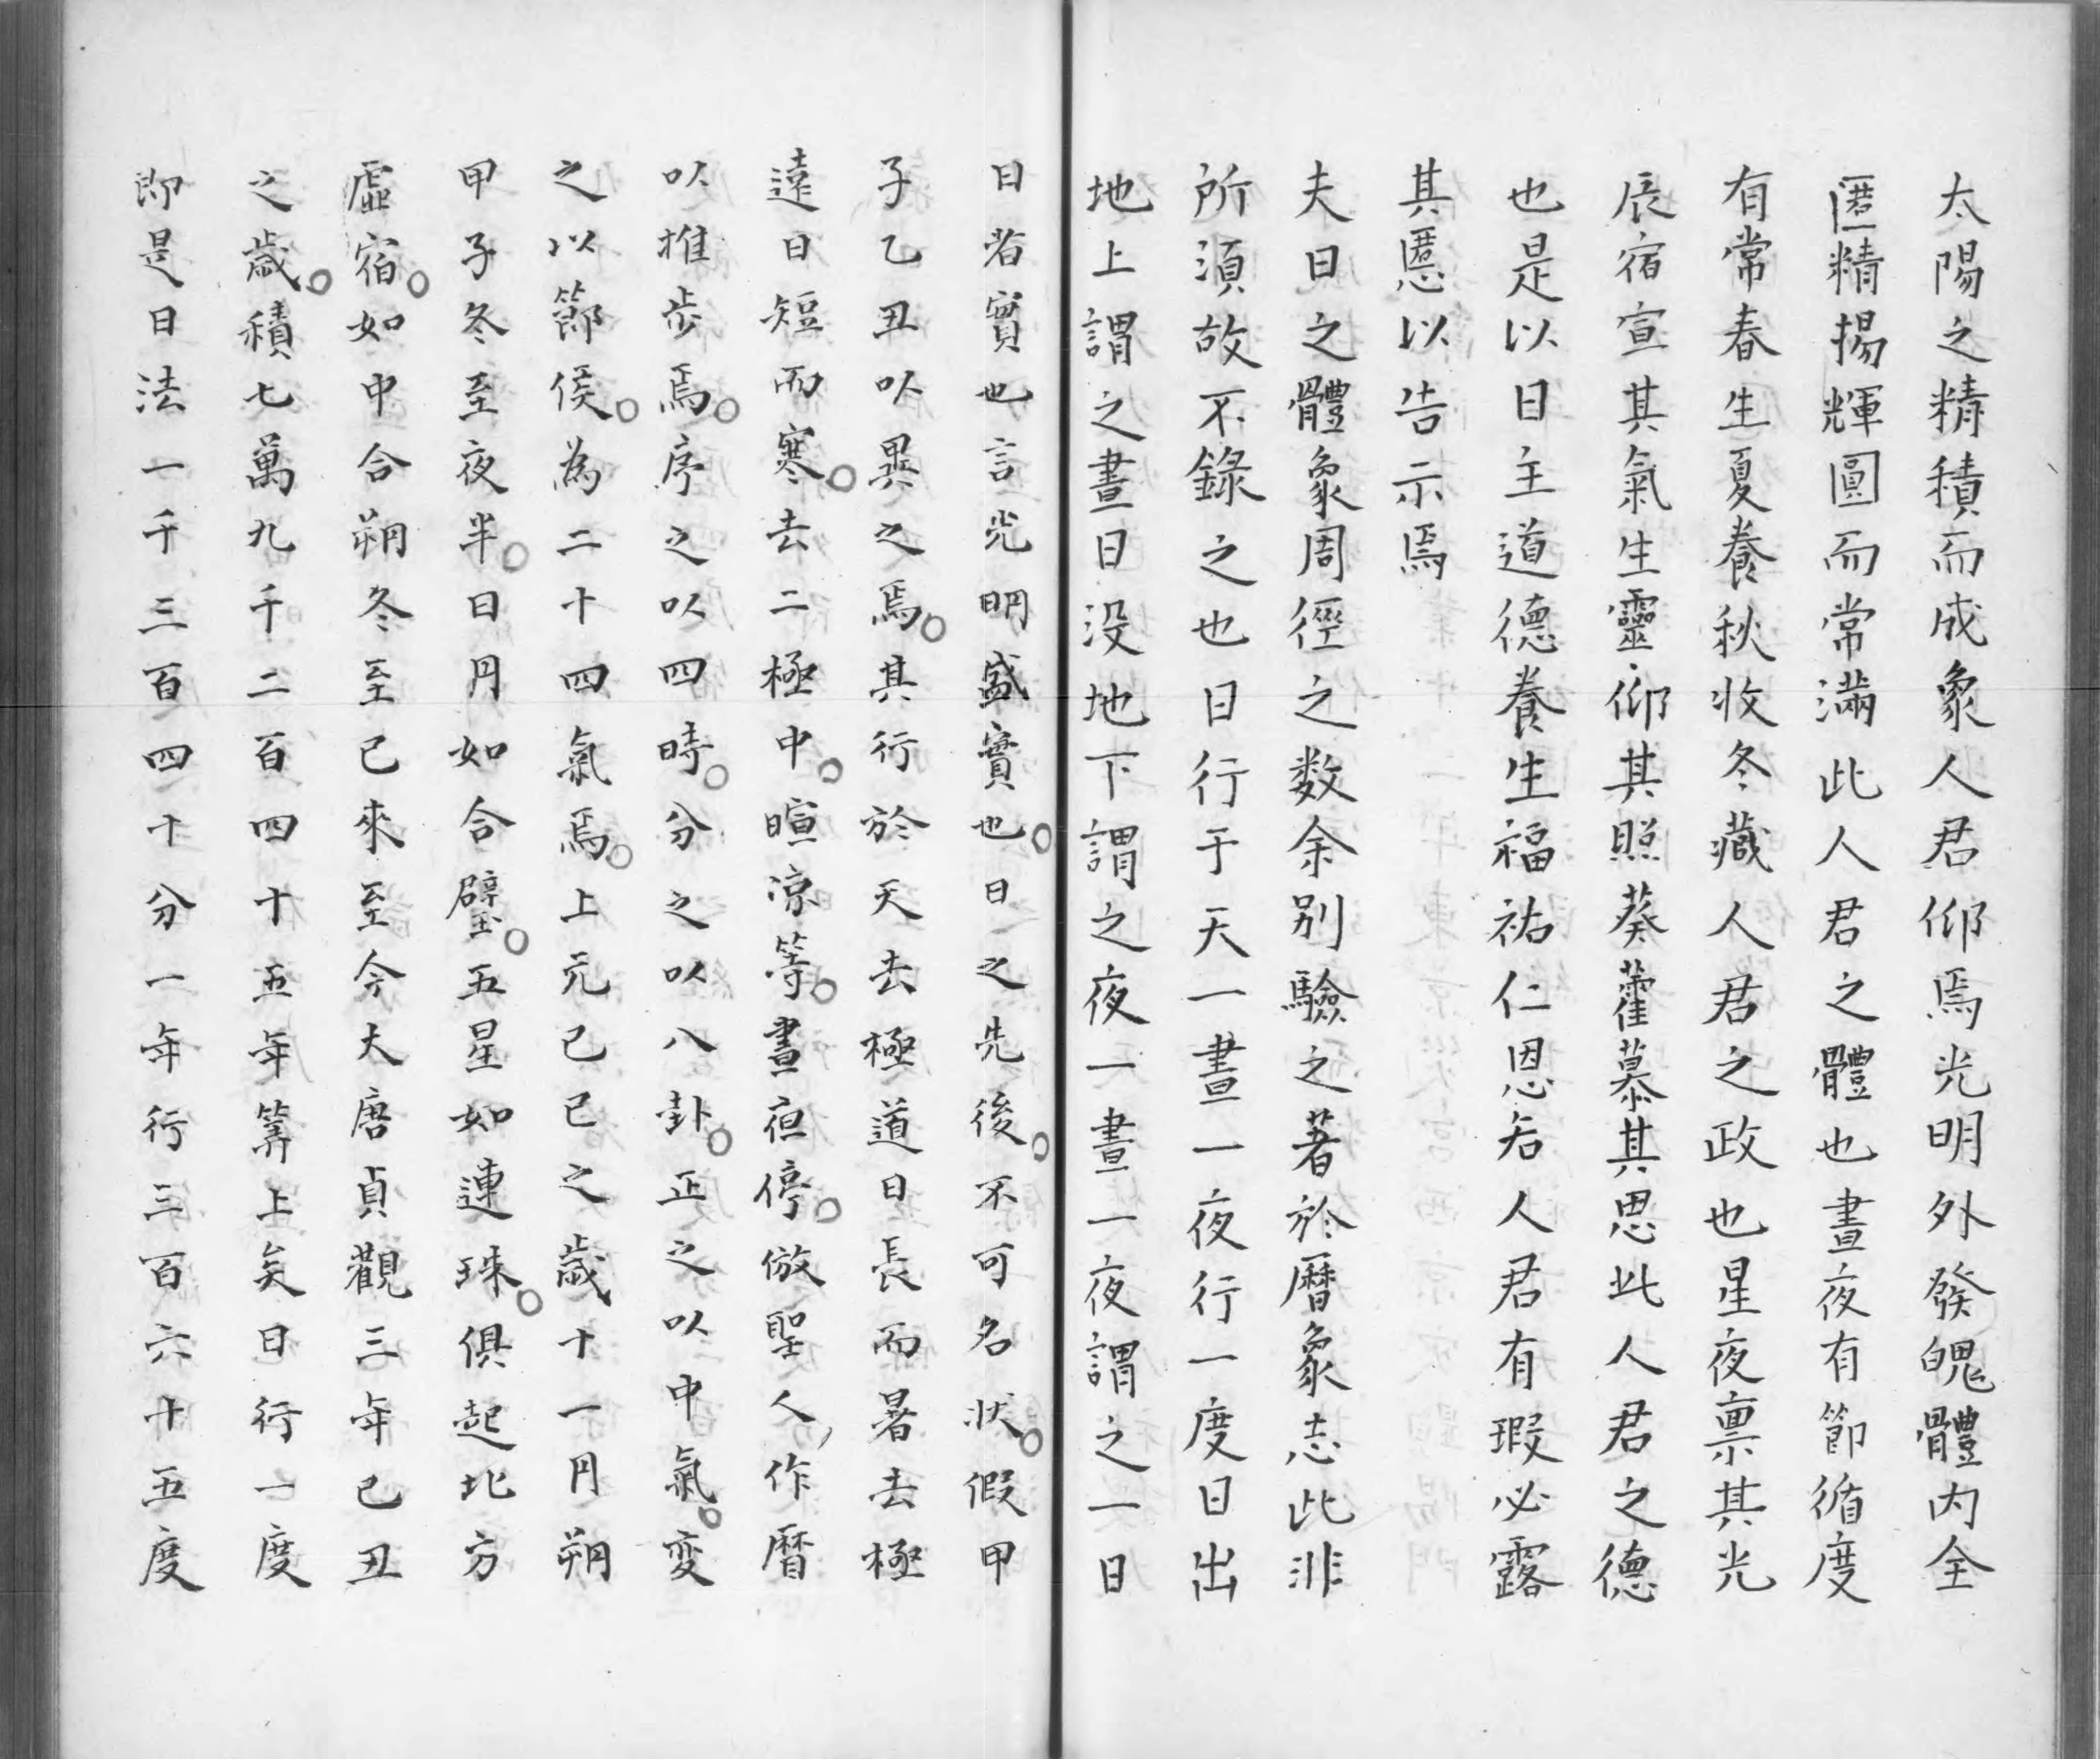 太陽之精積而成象人君仰焉光明外發魄體内全
匿精揚輝圓而常滿此人君之體也晝夜有節循度
有常春生夏養秋收冬藏人君之政也星夜禀其光
辰宿宣其氣生靈仰其照葵藿慕其思此人君之德
也是以日主道德養生福祐仁恩若人君有瑕必露
其慝以告示焉
夫日之體象周徑之数余别驗之著於曆象志此非
所湏故不錄之也日行于天一晝一夜行一度日出
地上謂之晝日没地下謂之夜一晝一夜謂之一日
日者實也言光明盛實也日之先後不可名状假甲
子乙丑以異之焉其行於天去極道日長而暑去極
遠日短而寒去二極中暄凉等晝夜停倣聖人作曆
以推歩焉序之以四時分之以八卦正之以中氣変
之以節侯為二十四氣焉上元己巳之歳十一円朔
甲子冬至夜半日円如合璧五星如連珠俱起北方
虚宿如中合朔冬至已來至今大唐貞觀三年己丑
之歳積七萬九千二百四十五年筭上矣日行一度
即是日法一千三百四十分一年行三百六十五度